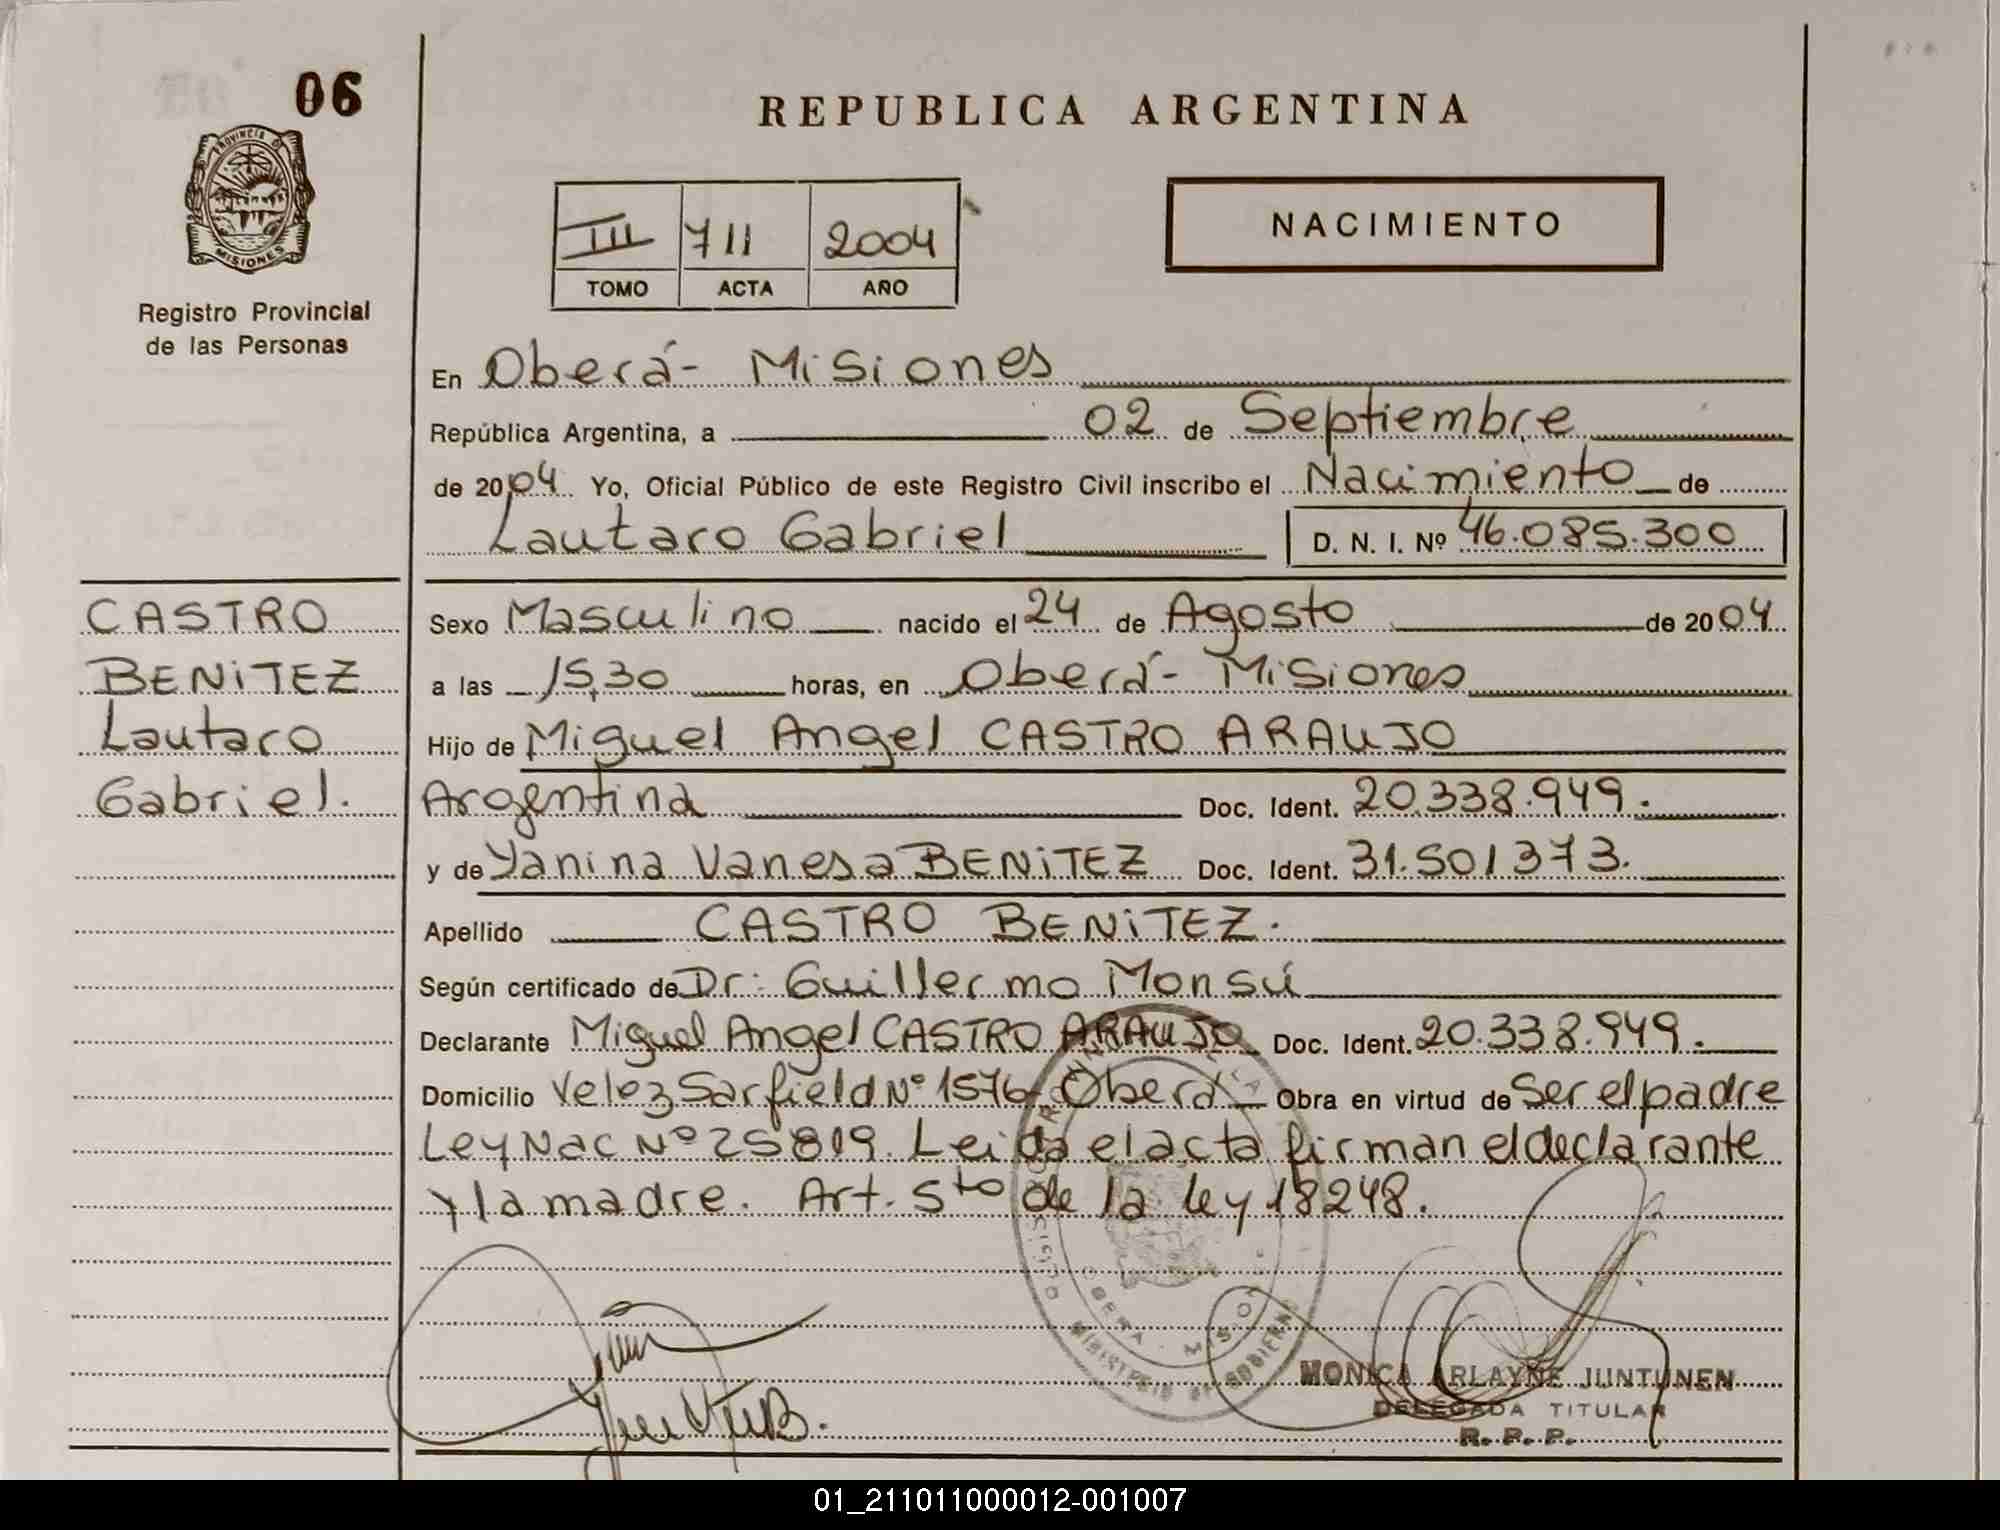 06
REPUBLICA ARGENTINA
PROVINCIA DE
MISIONES
Registro Provincial
de las Personas
III 711 2004
TOMO ACTA AÑO
NACIMIENTO
En Oberá - Misiones
República Argentina, a 02 de Septiembre
de 2004 Yo, Oficial Público de este Registro Civil inscribo el Nacimiento de
Lautaro Gabriel D. N. I. Nº 46.085.300
CASTRO
BENiTEZ
Lautaro
Gabriel.
Sexo Masculino nacido el 24 de Agosto de 2004
a las 15,30 horas, en Oberá - Misiones
Hijo de Miguel Angel CASTRO ARAUJO
Argentina Doc. Ident. 20.338.949.
y de Yanina Vanesa BENiTEZ Doc. Ident. 31.501373.
Apellido CASTRO BENiTEZ.
Según certificado de Dr: Guillermo Monsú
Declarante Miguel Angel CASTRO ARAUJO Doc. Ident. 20.338.949.
Domicilio Velez Sarfield Nº 1576 Oberá Obra en virtud de Ser el padre
Ley Nac Nº 25819. Leida el acta firman el declarante
y la madre. Art. 5to de la ley 18248.
OBERA - MISIONES
MINISTERIO DE GOBIERNO
MONICA ARLAYNE JUNTUNEN
DELEGADA TITULAR
R. P. P.
01_211011000012-001007